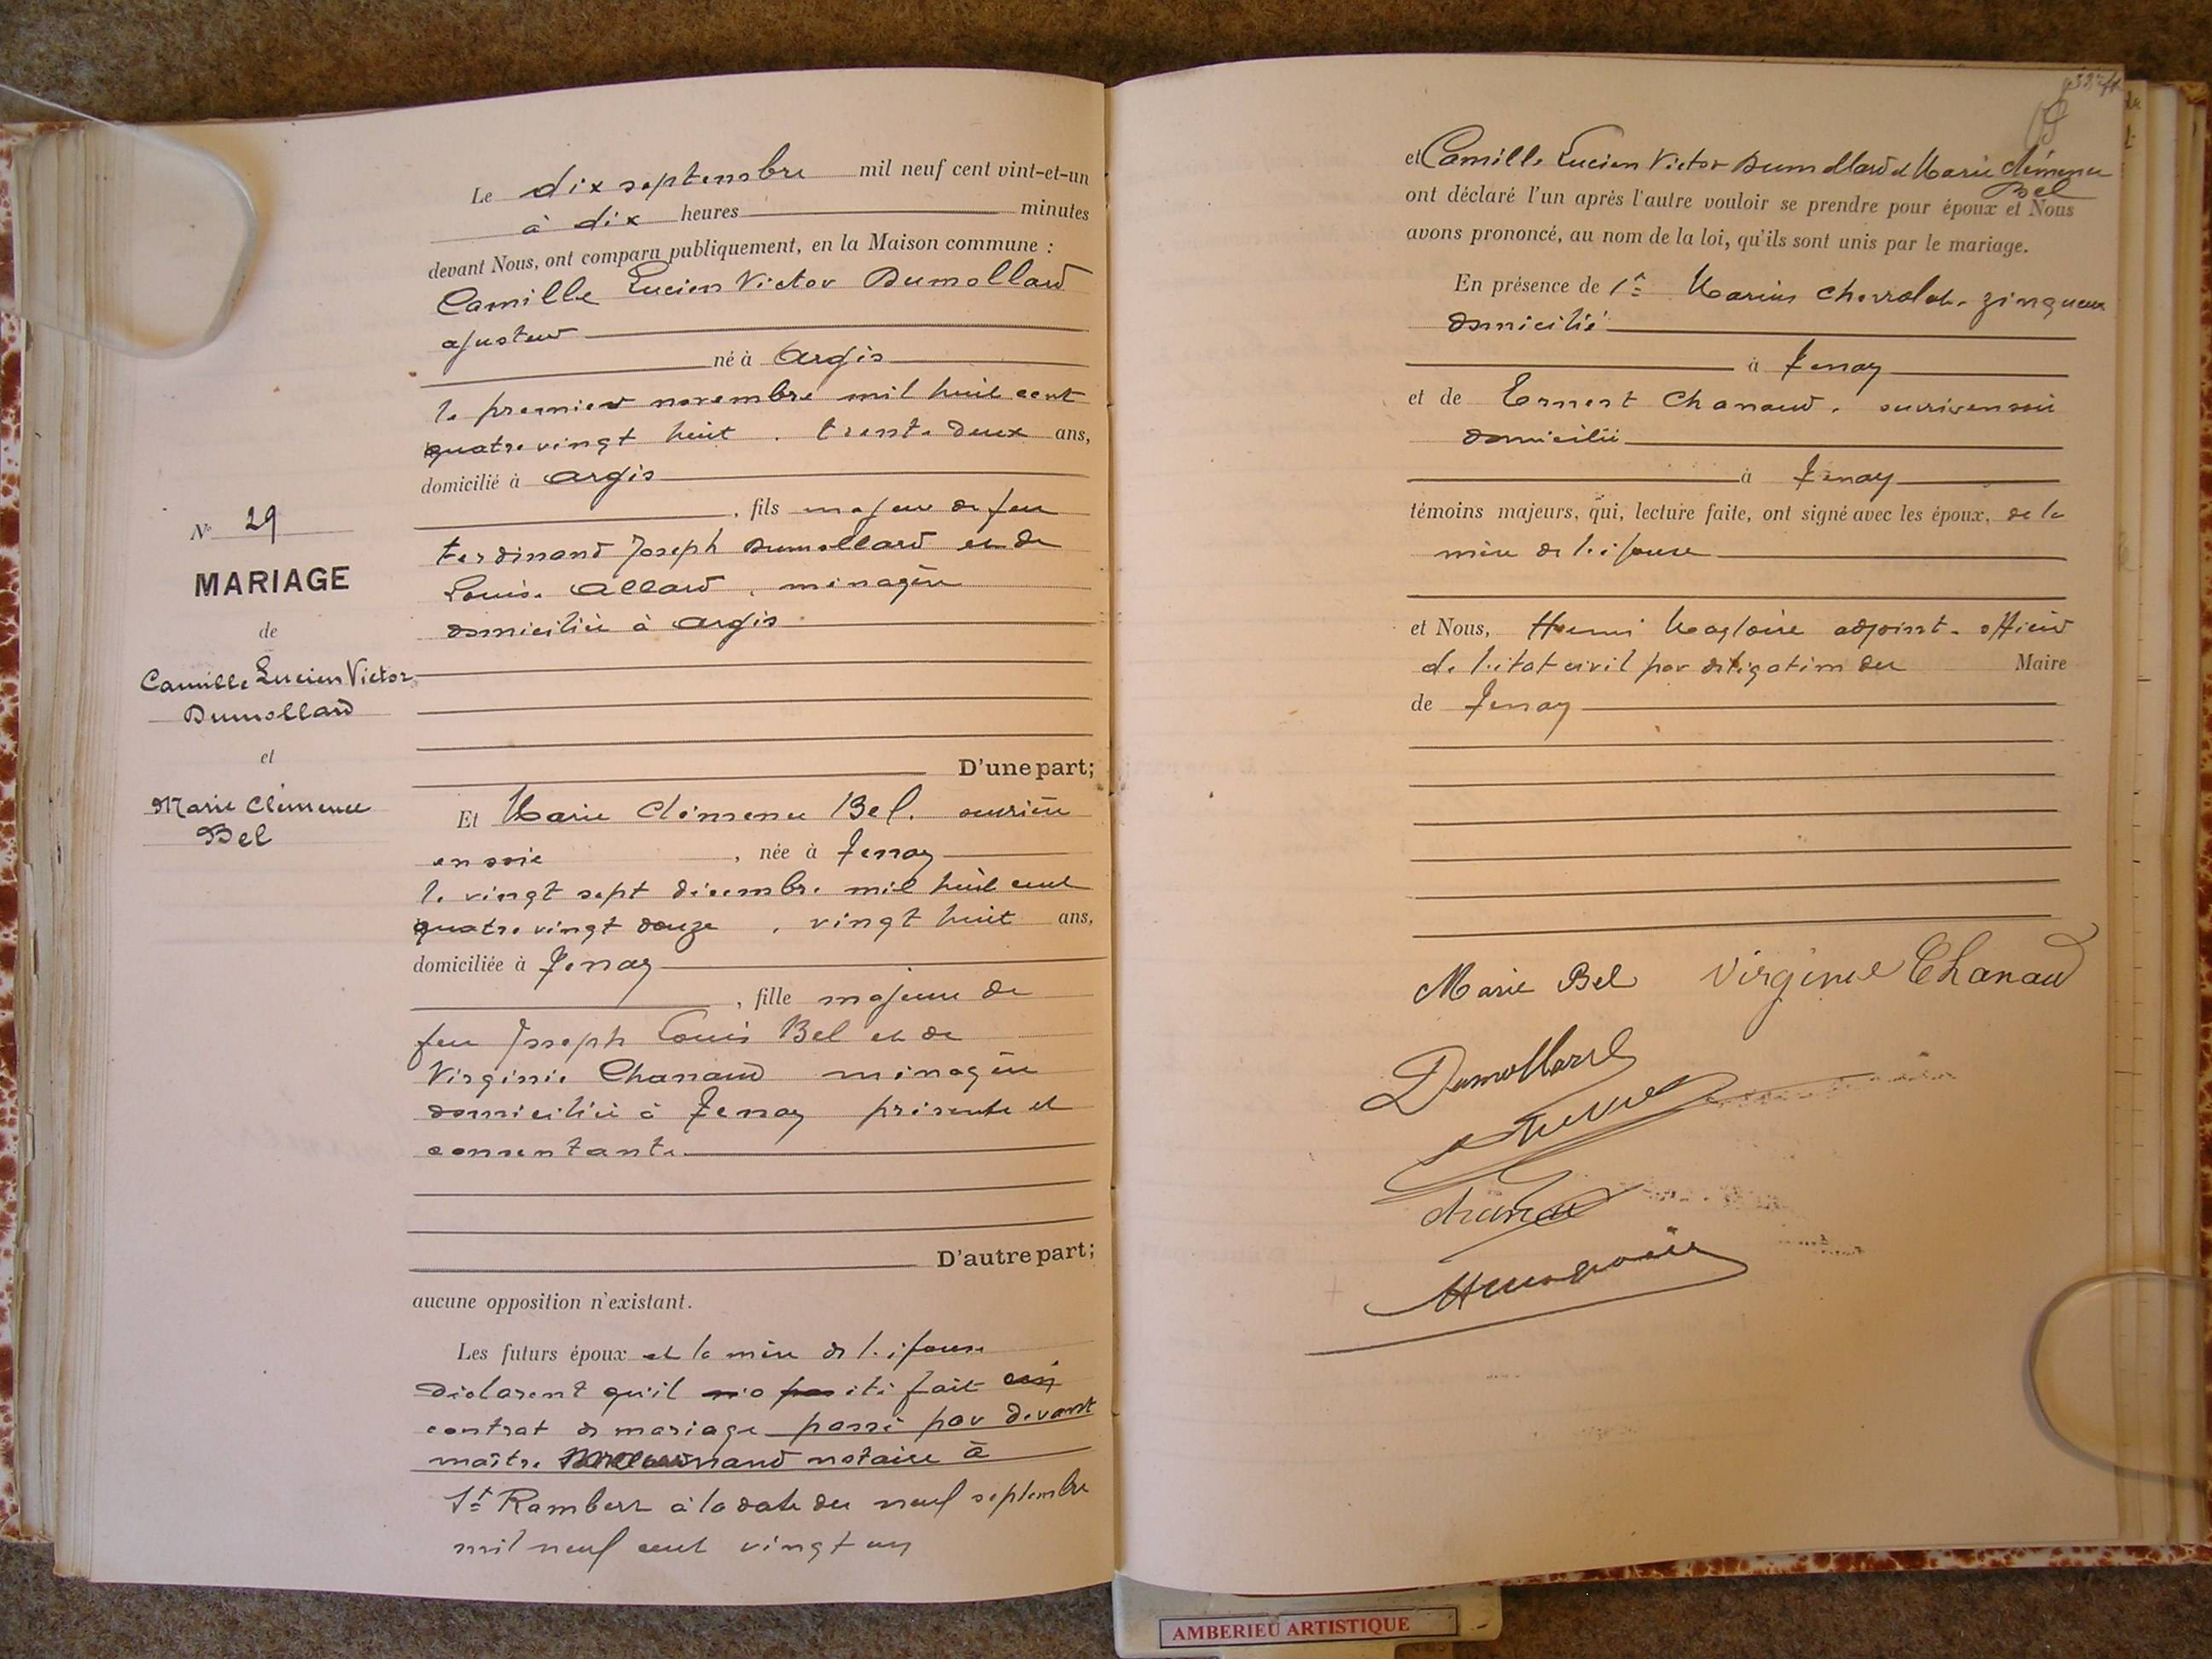 Le dix septembre mil neuf cent vint-et-un
à dix heures minutes
devant Nous, ont comparu publiquement, en la Maison commune :
Camille Lucien Victor Dumollard
ajusteur
né à Argis
le premier novembre mil huit cent
quatre vingt huit, trente deux ans,
domicilié à Argis
, fils majeur de feu
Ferdinand Joseph Dumollard et de
Louise Allard, ménagère
domiciliée à Argis
N° 29
MARIAGE
de
Camille Lucien Victor
Dumollard
et
Marie Clémence
Bel
D'une part;
Et Marie Clémence Bel, ouvrière
en soie, née à Tenay
le vingt sept décembre mil huit cent
quatre vingt douze, vingt huit ans,
domiciliée à Tenay
, fille majeure de
feu Joseph Louis Bel et de
Virginie Chanaud ménagère
domiciliée à Tenay présente et
consentante
D'autre part;
aucune opposition n'existant.
Les futurs époux et la mère de l'épouse
déclarent qu'il n'a pas été fait
contrat de mariage passé par devant
maître notaire à
St Rambert à la date du neuf septembre
mil neuf cent vingt un
et Camille Lucien Victor Dumollard et Marie Clémence
Bel
ont déclaré l'un après l'autre vouloir se prendre pour époux et Nous
avons prononcé, au nom de la loi, qu'ils sont unis par le mariage.
En présence de Marius zingueur
domicilié
à Tenay
et de Ernest Chanaud, ouvrier en soie
domicilié
à Tenay
témoins majeurs, qui, lecture faite, ont signé avec les époux, de la
mère de l'épouse
et Nous, Henri Magloire adjoint, officier
de l'état civil par délégation du Maire
de Tenay
Marie Bel Virginie Chanaud
Dumollard
AMBERIEU ARTISTIQUE